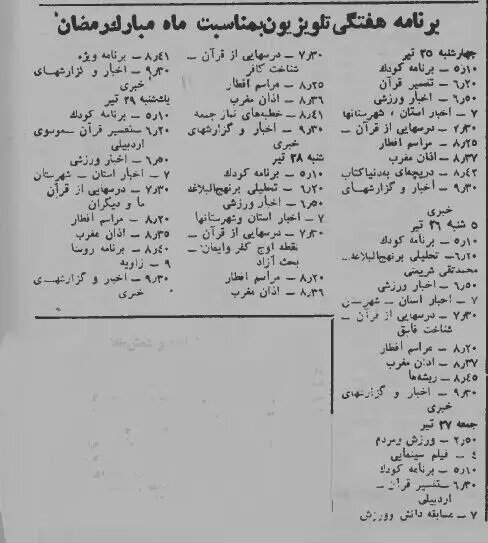 برنامه هفتگی تلویزیون بمناسبت ماه مبارک رمضان
چهارشنبه ۲۵ تیر
۵٫۱۰ – برنامه کودک
۶٫۲۰ – تفسیر قرآن
۶٫۵۰ – اخبار ورزشی
۷ – اخبار استان، شهرستانها
۷٫۳۰ – درسهایی از قرآن –
۸٫۲۵ – مراسم افطار
۸٫۳۷ – اذان مغرب
۸٫۴۲ – دریچه‌ای به‌دنیا کتاب
۹٫۳۰ – اخبار و گزارشهای
خبری
۵ شنبه ۲۶ تیر
۵٫۱۰ – برنامه کودک
۶٫۲۰ – تحلیلی برنهج‌البلاغه –
محمدتقی شریعتی
۶٫۵۰ – اخبار ورزشی
۷ – اخبار استان – شهرستان
۷٫۳۰ – درسهایی از قرآن –
شناخت
۸٫۲۰ – مراسم افطار
۸٫۳۷ – اذان مغرب
۸٫۴۵ – ریشه‌ها
۹٫۳۰ – اخبار و گزارشهای
خبری
جمعه ۲۷ تیر
۲٫۵۰ – ورزش ومردم
۴ – فیلم سینمایی
۵٫۱۰ – برنامه کودک
۶٫۳۰ – تفسیر قرآن –
اردبیلی
۷ – مسابقه دانش وورزش
۷٫۳۰ – درسهایی از قرآن –
شناخت کافر
۸٫۲۵ – مراسم افطار
۸٫۳۶ – اذان مغرب
۸٫۴۱ – خطبه‌های نماز جمعه
۹٫۳۰ – اخبار و گزارشهای
خبری
شنبه ۲۸ تیر
۵٫۱۰ – برنامه کودک
۶٫۲۰ – تحلیلی برنهج‌البلاغه
۶٫۵۰ – اخبار ورزشی
۷ – اخبار استان وشهرستانها
۷٫۳۰ – درسهایی از قرآن –
نقطه اوج کفر وایمان –
بحث آزاد
۸٫۲۰ – مراسم افطار
۸٫۳۶ – اذان مغرب
۸٫۴۱ – برنامه ویژه
۹٫۳۰ – اخبار و گزارشهای
خبری
یکشنبه ۲۹ تیر
۵٫۱۰ – برنامه کودک
۶٫۲۰ – تفسیر قرآن – موسوی
اردبیلی
۶٫۵۰ – اخبار ورزشی
۷ – اخبار استان – شهرستان
۷٫۳۰ – درسهایی از قرآن
ما و دیگران
۸٫۲۰ – مراسم افطار
۸٫۳۵ – اذان مغرب
۸٫۴۰ – برنامه روستا
۹ – زاویه
۹٫۳۰ – اخبار و گزارشهای
خبری